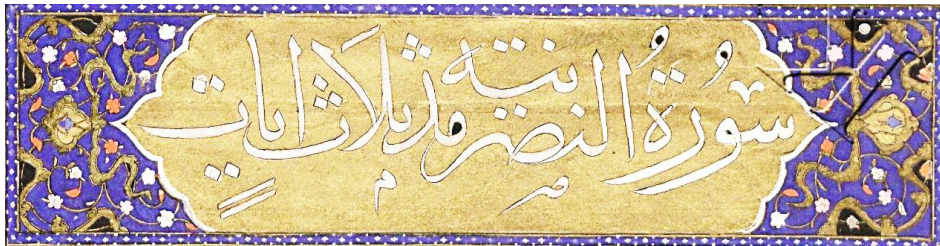 سُورَةُ النصر مدينية ثلاث ايات